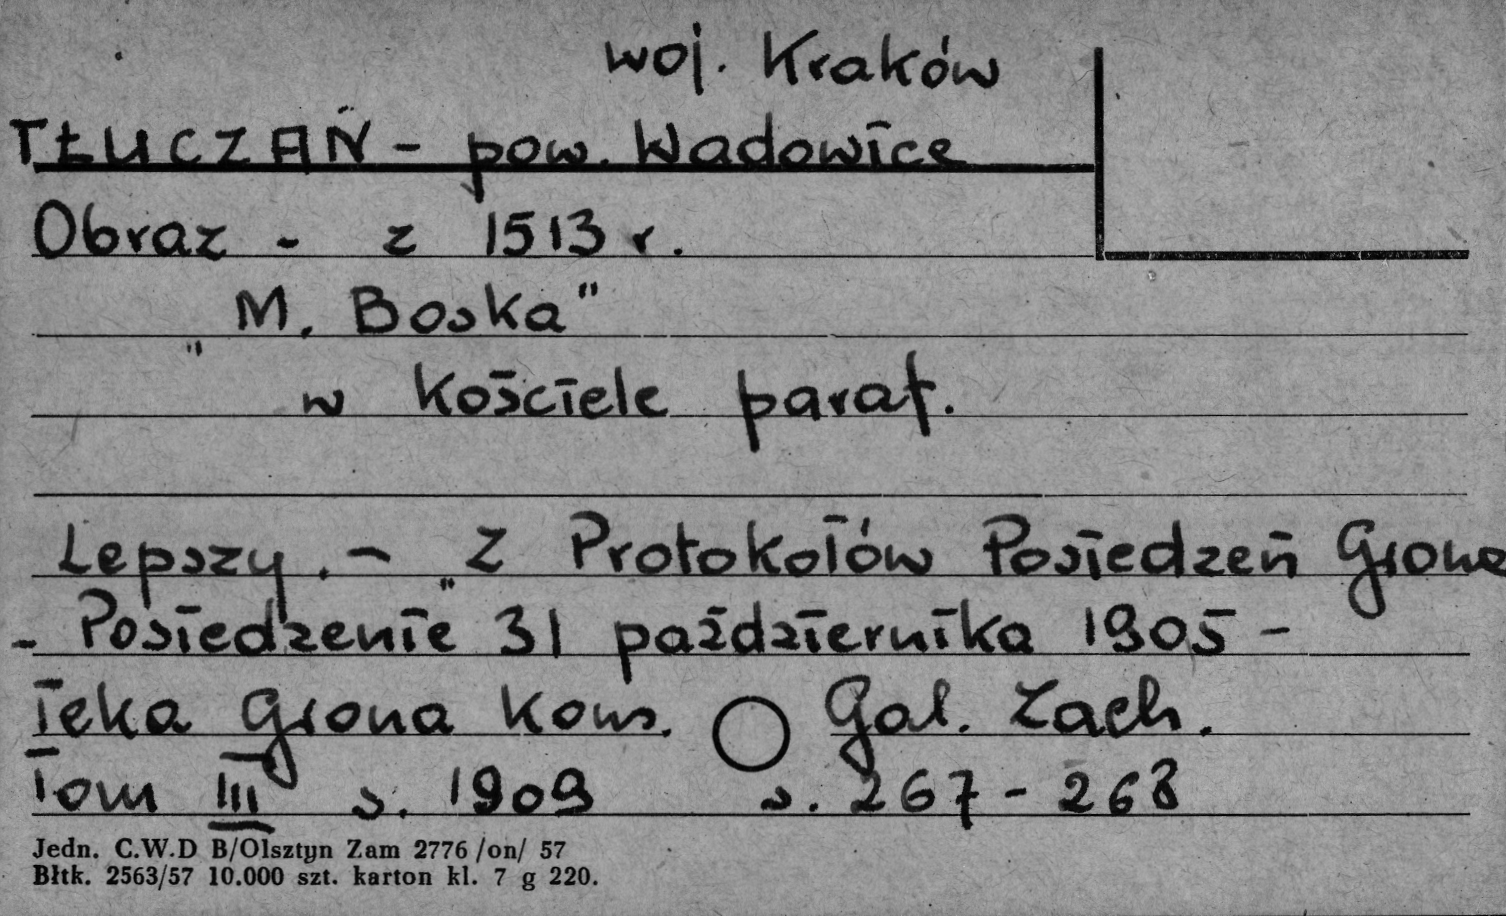 woj. Kraków
TŁUCZAŃ - pow. Wadowice
Obraz - z 1513 r.
"M. Boska"
w kościele paraf.
Lepszy. - "Z Protokołów Posiedzeń Grona
- Posiedzenie" 31 października 1905 -
Teka Grona Kons. Gal. Zach.
Tom III s. 1909 s. 267 - 268
Jedn. C.W.D B/Olsztyn Zam 2776 /on/ 57
Błtk. 2563/57 10.000 szt. karton kl. 7 g 220.